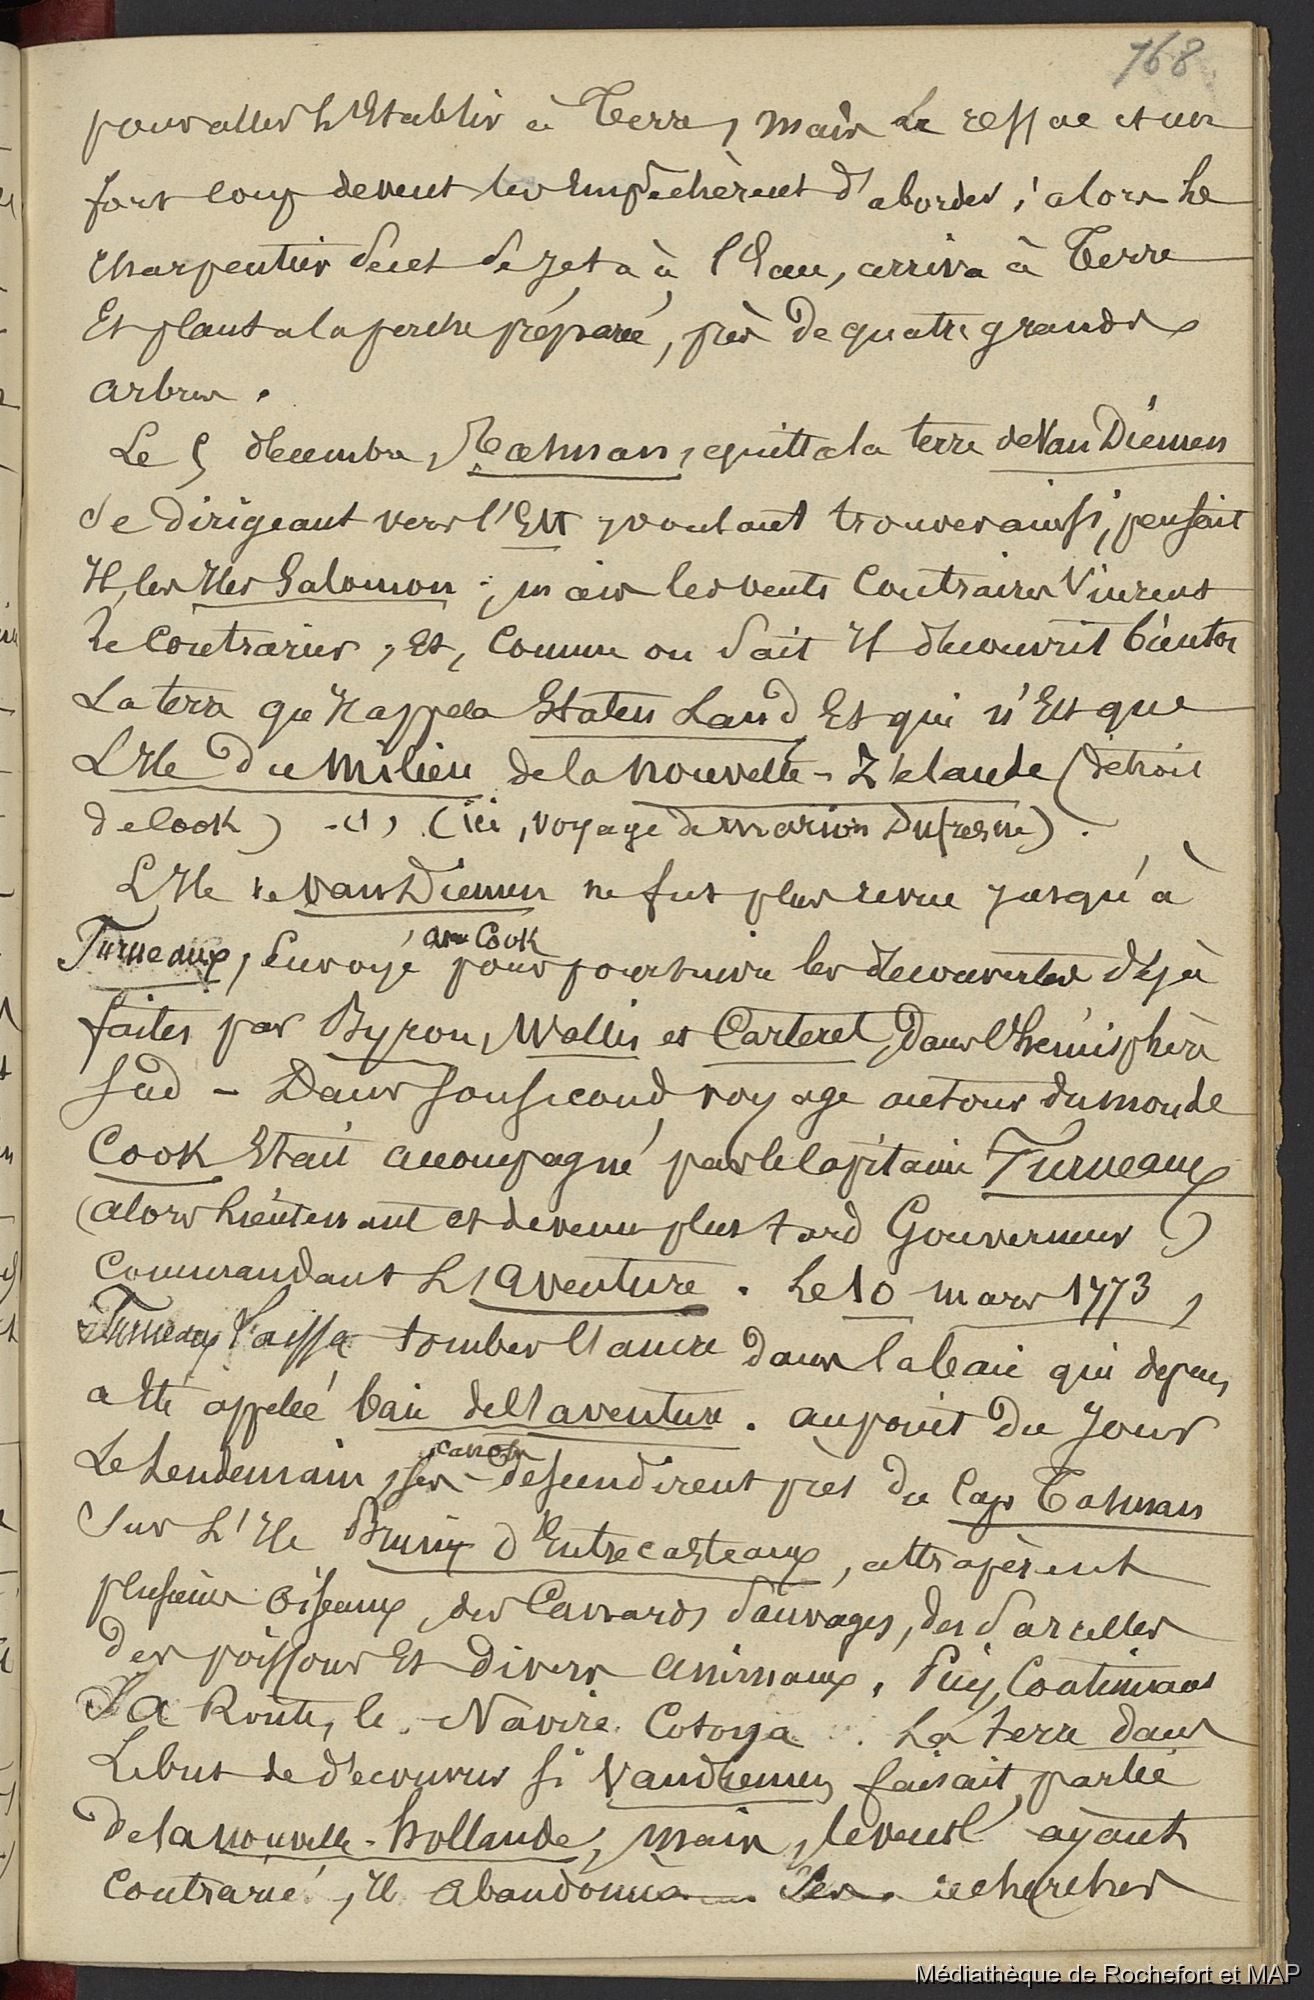 168
pour aller s'Etablir à Terre, mais Le ressac et un
fort coup de vent les Empêchèrent d'aborder ; alors Le
charpentier seul se jeta à l'Eau, arriva à Terre
Et planta la perche préparée, près de quatre grands
arbres.
Le 5 décembre, Tasman, quitta la terre de Van Diémen
se dirigeant vers l'Est voulant trouver ainsi, pensait
Il, les Iles Salomon ; mais les vents Contraires Vinrent
le Contrarier, Et, Comme on sait Il découvrit bientôt
La terre qu'Il appela Staten Land Et qui n'Est que
L'Ile du Milieu de la nouvelle-Zélande (détroit
de Cook) - (1) (ici, voyage de marion Dufresne).
L'Ile de Van Diemen ne fut plus revue jusqu'à
avec Cook
Furneaux, Envoyé pour poursuivre les découvertes déjà
faites par Byron, Wallis et Carteret, dans l'hémisphère
Sud - Dans son second voyage autour du monde
Cook Etait accompagné par le Capitaine Furneaux
(alors lieutenant et devenu plus tard Gouverneur)
Commandant L'Aventure. Le 10 mars 1773,
Furneaux laissa tomber l'ancre dans la baie qui depuis
a été appelée baie de l'aventure. au point du Jour
canots
Le lendemain, ses descendirent près du Cap Tasman
Sur L'Ile Bruny d'Entrecasteaux, attrapèrent
plusieurs Oiseaux, des Canards Sauvages, des Sarcelles
des poissons Et divers animaux. Puis, Continuant
Sa Route, le Navire Cotoya La terre dans
Le but de découvrir si Vandiemen faisait partie
de la nouvelle-hollande, mais, le vent l'ayant
Contrarié, Il abandonna Les recherches
Médiathèque de Rochefort et MAP